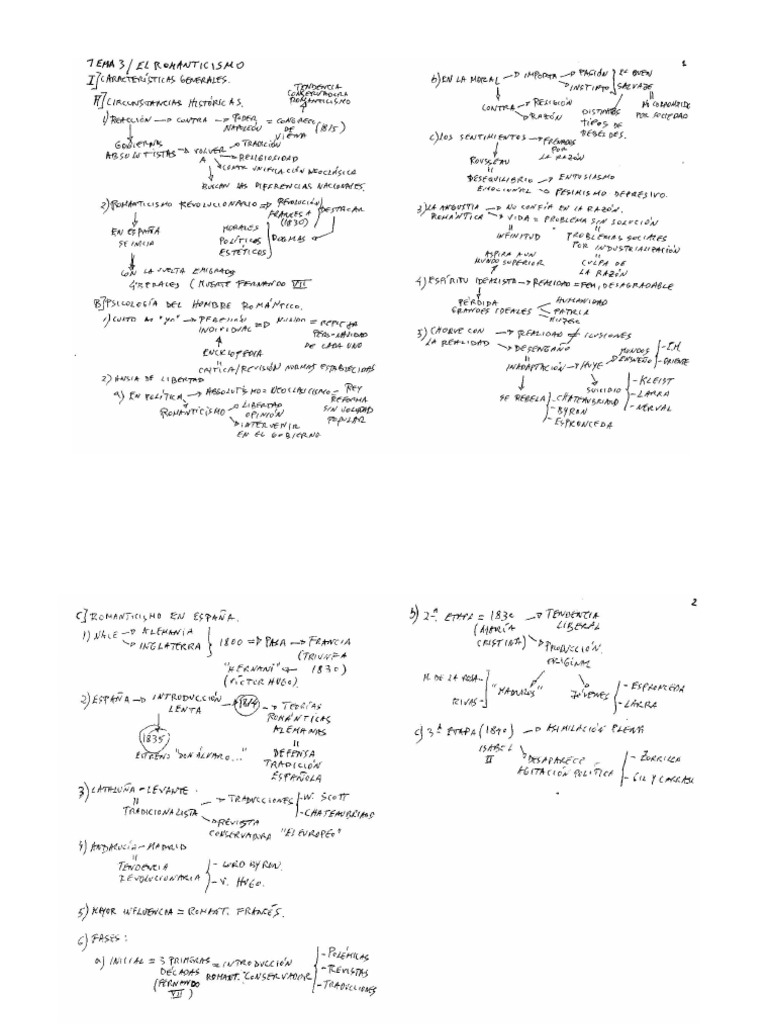 TEMA 3/ EL ROMANTICISMO
I] CARACTERÍSTICAS GENERALES.
A] CIRCUNSTANCIAS HISTÓRICAS.
TENDENCIA
CONSERVADORA
ROMANTICISMO
1) REACCIÓN → CONTRA → PODER NAPOLEÓN = CONGRESO DE VIENA (1815)
GOBIERNOS ABSOLUTISTAS → VOLVER A → TRADICIÓN
→ RELIGIOSIDAD
→ CONTRA UNIFICACIÓN NEOCLÁSICA
BUSCAN LAS DIFERENCIAS NACIONALES.
2) ROMANTICISMO REVOLUCIONARIO → REVOLUCIÓN FRANCESA (1830) DESTACAR
EN ESPAÑA SE INICIA
MORALES
POLÍTICOS
ESTÉTICOS
DOGMAS
CON LA VUELTA EMIGRADOS
LIBERALES (MUERTE FERNANDO VII
B] PSICOLOGÍA DEL HOMBRE ROMÁNTICO.
1) CULTO AL "yo" → INDIVIDUAL → = REFLEJA PERSONALIDAD DE CADA UNO
ENCICLOPEDIA
CRÍTICA/REVISIÓN NORMAS ESTABLECIDAS
2) ANSIA DE LIBERTAD
a) EN POLÍTICA → ABSOLUTISMO = NEOCLASICISMO = REY REFORMA SIN VOLUNTAD POPULAR
ROMANTICISMO → LIBERTAD OPINIÓN
→ INTERVENIR EN EL GOBIERNO
1
b) EN LA MORAL → IMPORTA → PASIÓN
→ INSTINTO
EL BUEN SALVAJE
CONTRA → RELIGIÓN
→ RAZÓN
DISTINTOS TIPOS DE REBELDES.
NO CORROMPIDO POR SOCIEDAD
c) LOS SENTIMIENTOS → FRENADOS POR LA RAZÓN
ROUSSEAU
=
DESEQUILIBRIO EMOCIONAL → ENTUSIASMO
→ PESIMISMO DEPRESIVO.
3) LA ANGUSTIA ROMÁNTICA → NO CONFÍA EN LA RAZÓN.
→ VIDA = PROBLEMA SIN SOLUCIÓN
INFINITUD
PROBLEMAS SOCIALES POR INDUSTRIALIZACIÓN
=
CULPA DE LA RAZÓN
ASPIRA A UN MUNDO SUPERIOR
4) ESPÍRITU IDEALISTA → REALIDAD = FEA, DESAGRADABLE
PÉRDIDA GRANDES IDEALES
HUMANIDAD
PATRIA
MUJER
5) CHOQUE CON LA REALIDAD → REALIDAD ≠ ILUSIONES
→ DESENGAÑO
INADAPTACIÓN → HUYE → MUNDOS ENSUEÑO
- E.M.
- ORIENTE
SE REBELA
- CHATEAUBRIAND
- BYRON
- ESPRONCEDA
SUICIDIO
- KLEIST
- LARRA
- NERVAL
C] ROMANTICISMO EN ESPAÑA.
1) NACE → ALEMANIA
→ INGLATERRA
1800 → PASA → FRANCIA (TRIUNFA 1830)
"HERNANI" (VÍCTOR HUGO).
2) ESPAÑA → INTRODUCCIÓN LENTA → 1814 → TEORÍAS ROMÁNTICAS ALEMANAS
=
DEFENSA TRADICIÓN ESPAÑOLA
1835
ESTRENO "DON ÁLVARO..."
3) CATALUÑA - LEVANTE
=
TRADICIONALISTA → TRADUCCIONES
- W. SCOTT
- CHATEAUBRIAND
→ REVISTA CONSERVADORA "EL EUROPEO"
4) ANDALUCÍA - MADRID
=
TENDENCIA REVOLUCIONARIA
- LORD BYRON.
- V. HUGO.
5) MAYOR INFLUENCIA = ROMANT. FRANCÉS.
6) FASES:
a) INICIAL = 3 PRIMERAS DÉCADAS (FERNANDO VII) = INTRODUCCIÓN ROMANT. CONSERVADOR
- POLÉMICAS
- REVISTAS
- TRADUCCIONES
2
b) 2ª. ETAPA = 1830 (MARÍA CRISTINA) → TENDENCIA LIBERAL
→ PRODUCCIÓN ORIGINAL
M. DE LA ROSA
RIVAS
"MADUROS"
JÓVENES
- ESPRONCEDA
- LARRA
c) 3ª ETAPA (1840) → ASIMILACIÓN PLENA
ISABEL II
DESAPARECE AGITACIÓN POLÍTICA
- ZORRILLA
- GIL Y CARRASC